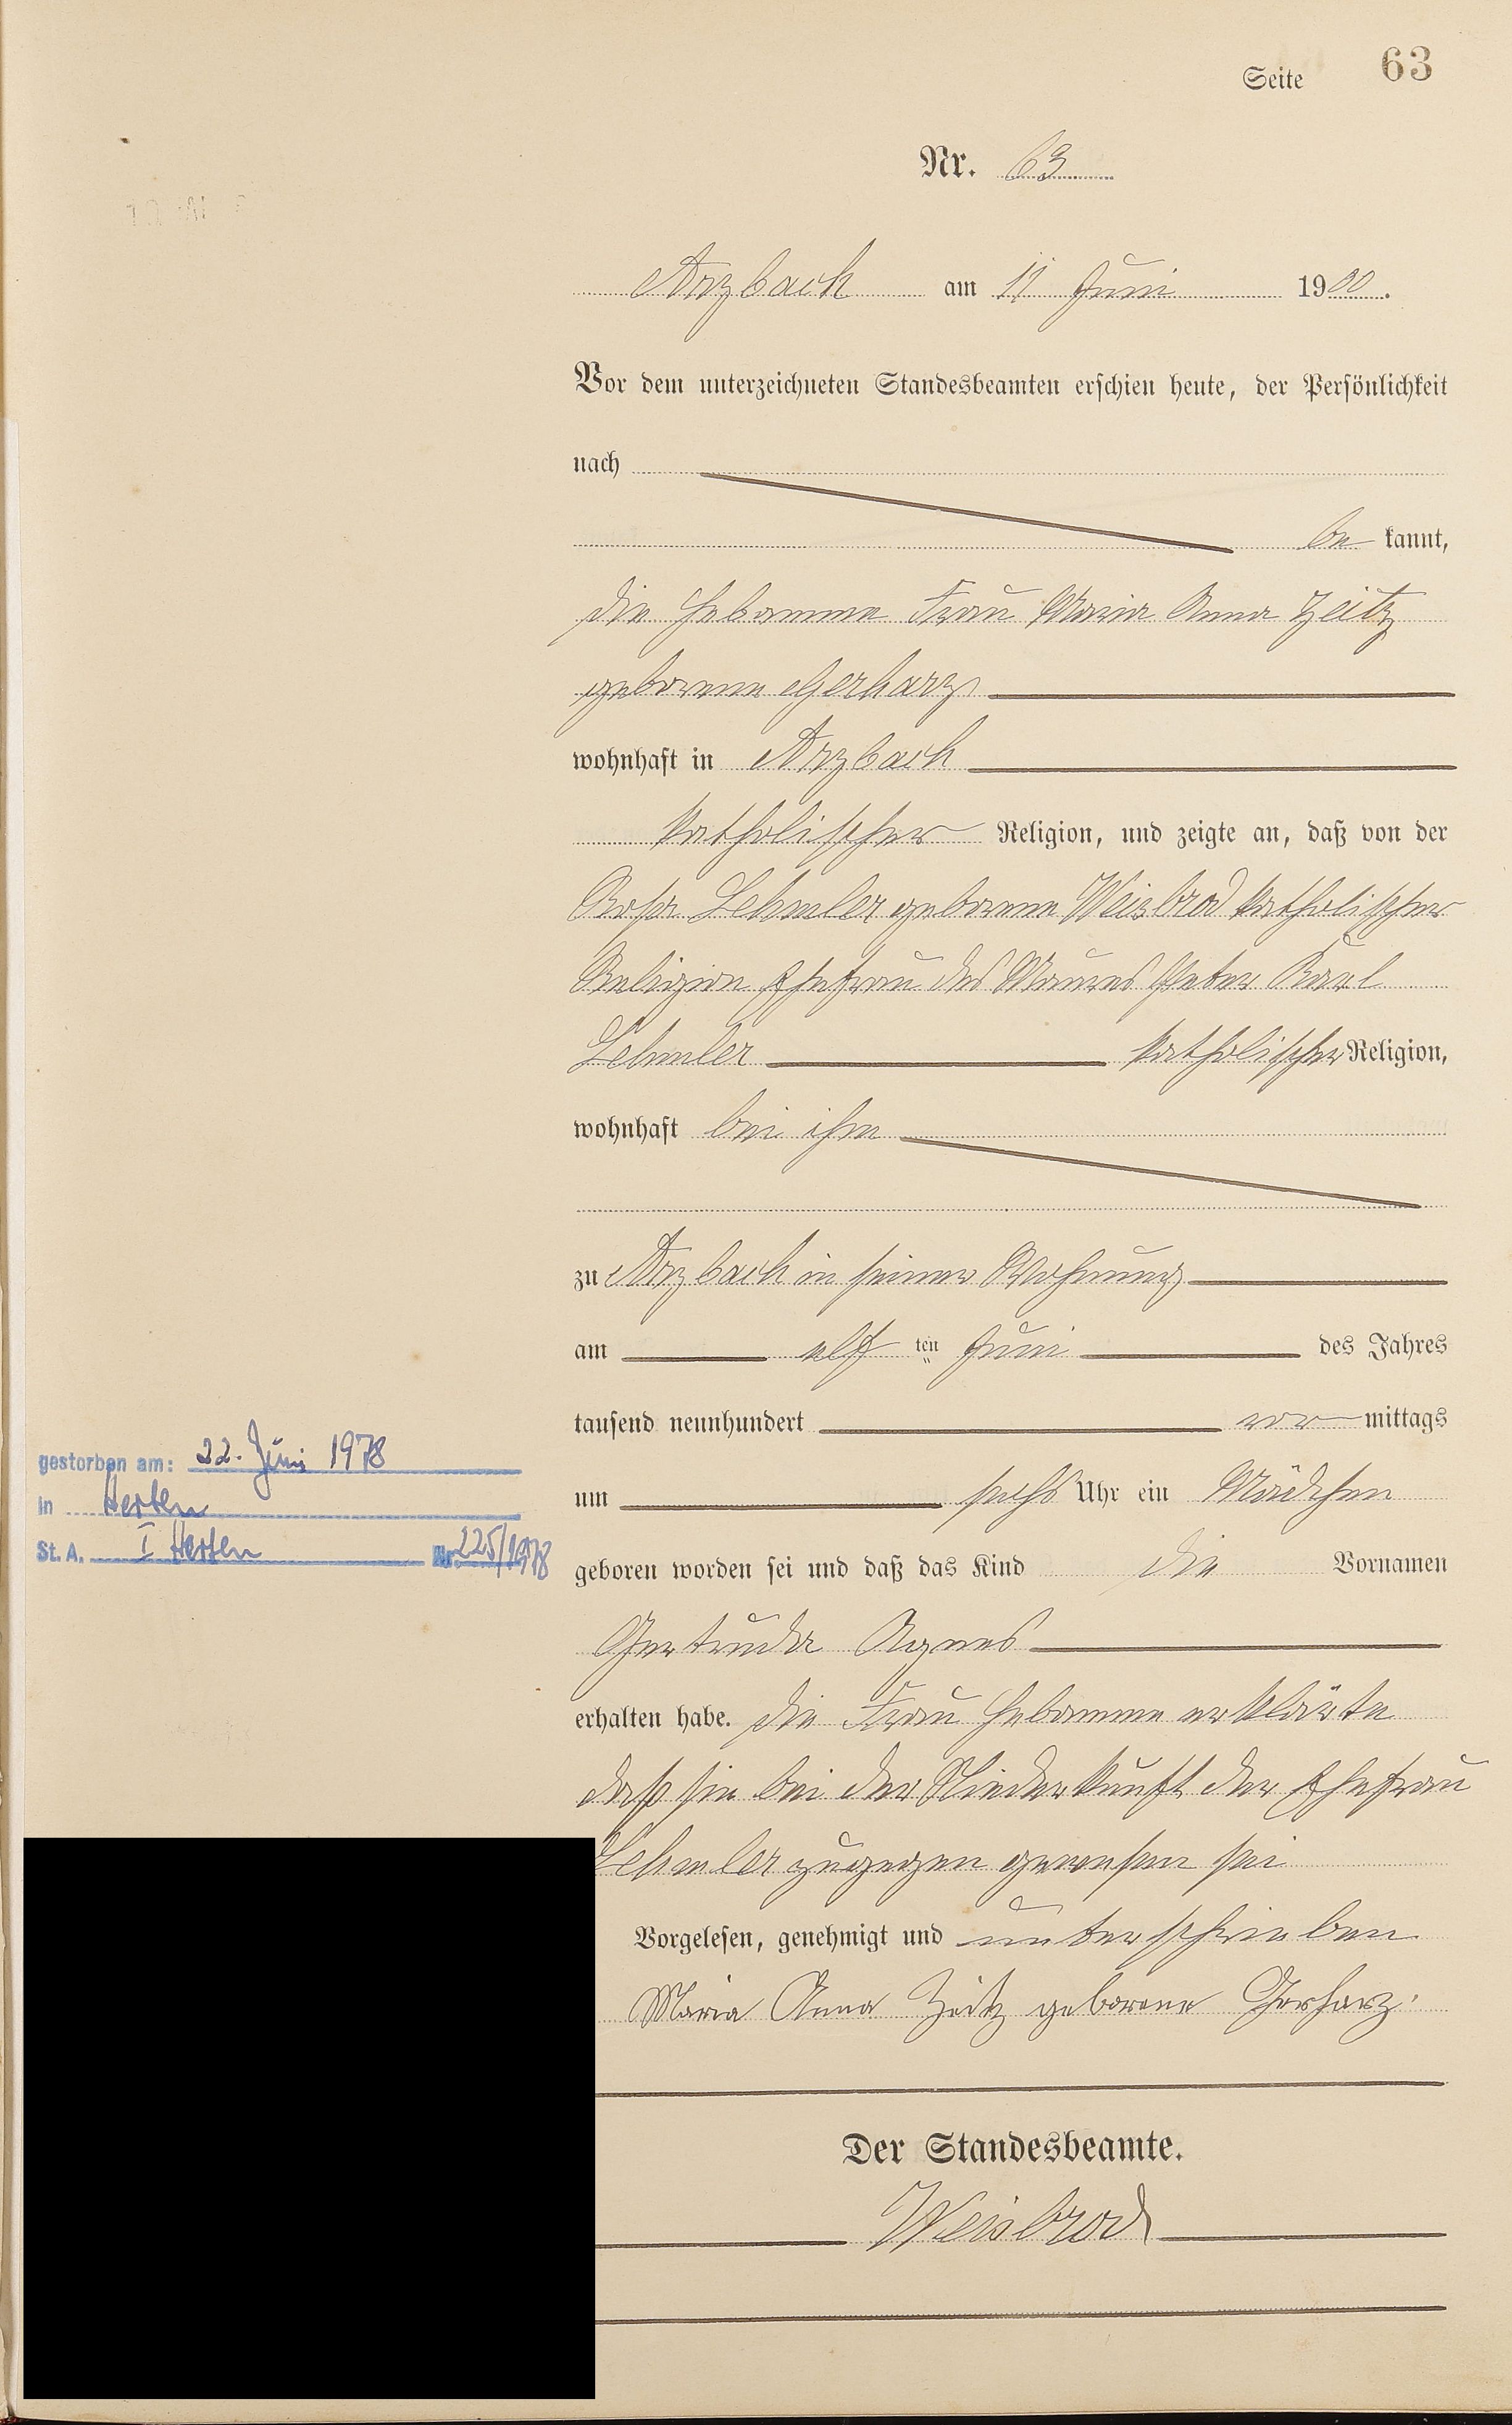 Seite 63
Nr. 63
Arzbach am 11 Juni 1900.
Vor dem unterzeichneten Standesbeamten erschien heute, der Persönlichkeit
nach
be kannt,
die Hebamme Frau Maria Anna Zeitz
geborene Gerharz
wohnhaft in Arzbach
katholischer Religion, und zeigte an, daß von der
Rosa Lehmler geborene Weisbrod katholischer
Religion Ehefrau des Maurers Peter Karl
Lehmler katholischer Religion,
wohnhaft bei ihm
zu Arzbach in seiner Wohnung
am elf ten Juni des Jahres
tausend neunhundert vor mittags
um sechs Uhr ein Mädchen
geboren worden sei und daß das Kind die Vornamen
Gertruda Agnes
erhalten habe. Die Frau Hebamme erklärte
daß sie bei der Niederkunft der Ehefrau
Lehmler zugegen gewesen sei
Vorgelesen, genehmigt und unterschrieben
Maria Anna Zeitz geborene Gerharz.
Der Standesbeamte.
Weisbrod
gestorben am: 22. Juni 1978
in Herten
St. A. I Herten Nr. 225/1978